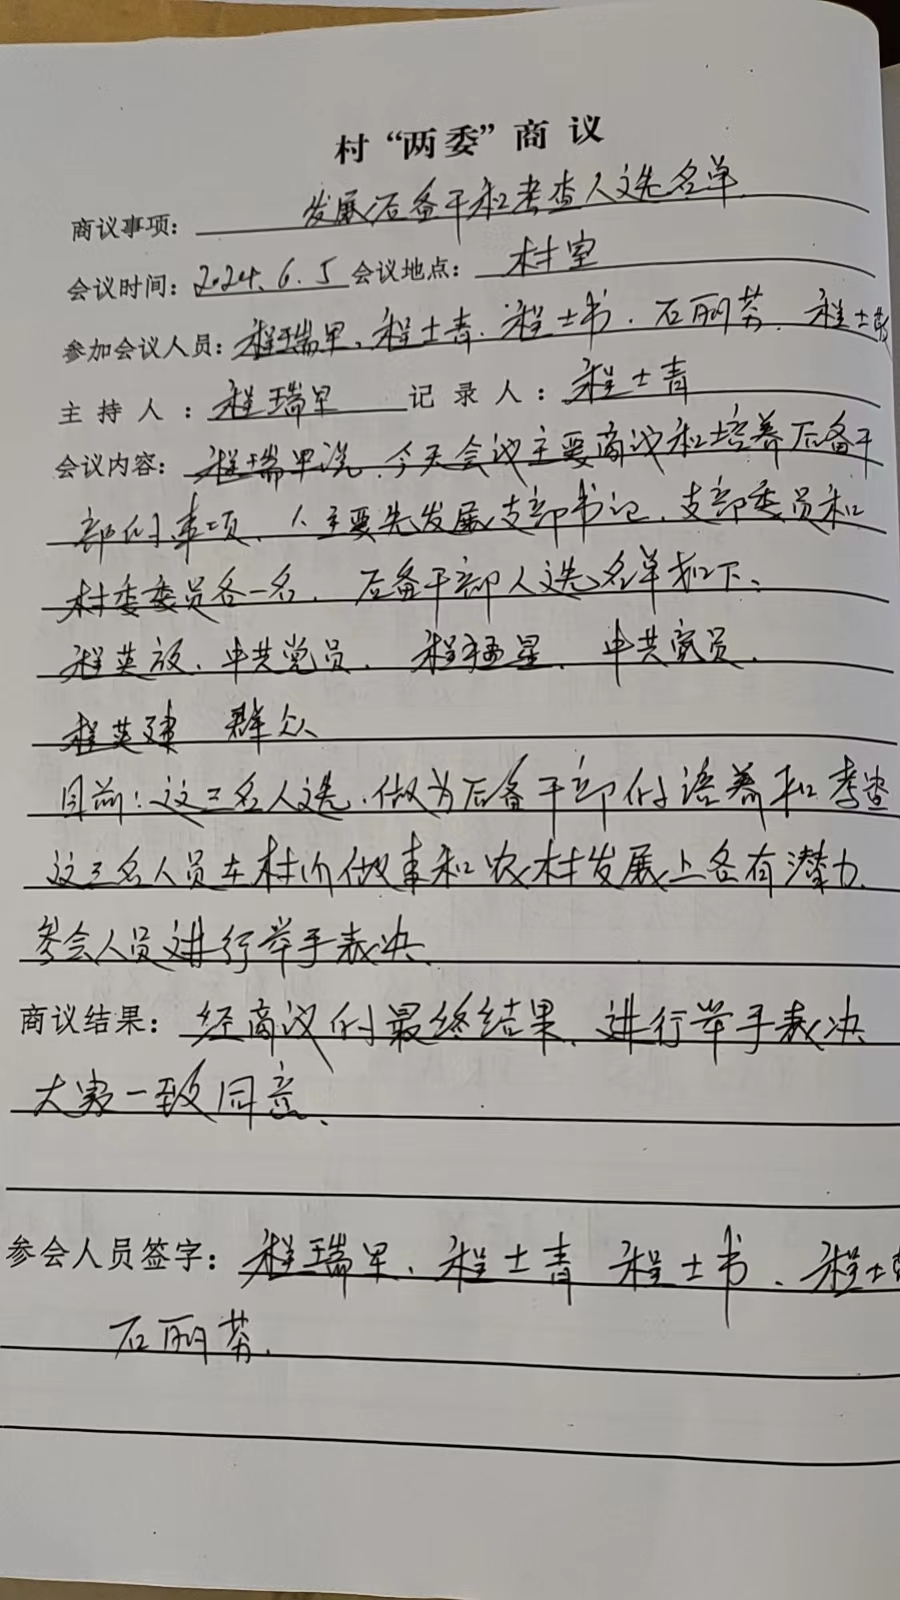 村“两委”商议
商议事项：发展后备干和考查人选名单
会议时间：2024.6.5 会议地点：村室
参加会议人员：程瑞早、程士青、程士书、石丽芬、程士
主持人：程瑞早 记录人：程士青
会议内容：程瑞早说、今天会议主要商议和培养后备干
部的事项、主要先发展支部书记、支部委员和
村委委员各一名、后备干部人选名单如下、
程英放、中共党员、程 星、中共党员、
程英建 群众
目前：这三名人选、做为后备干部的培养和考查
这三名人员在村的做事和农村发展上各有潜力、
参会人员进行举手表决、
商议结果：经商议的最终结果、进行举手表决
大家一致同意、
参会人员签字：程瑞早、程士青 程士书、程士
石丽芬、